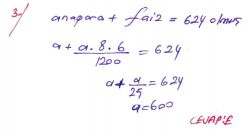 3.) anapara + faiz = 624 olmuş
a + a.8.6/1200 = 624
a + a/25 = 624
a=600
CEVAP E